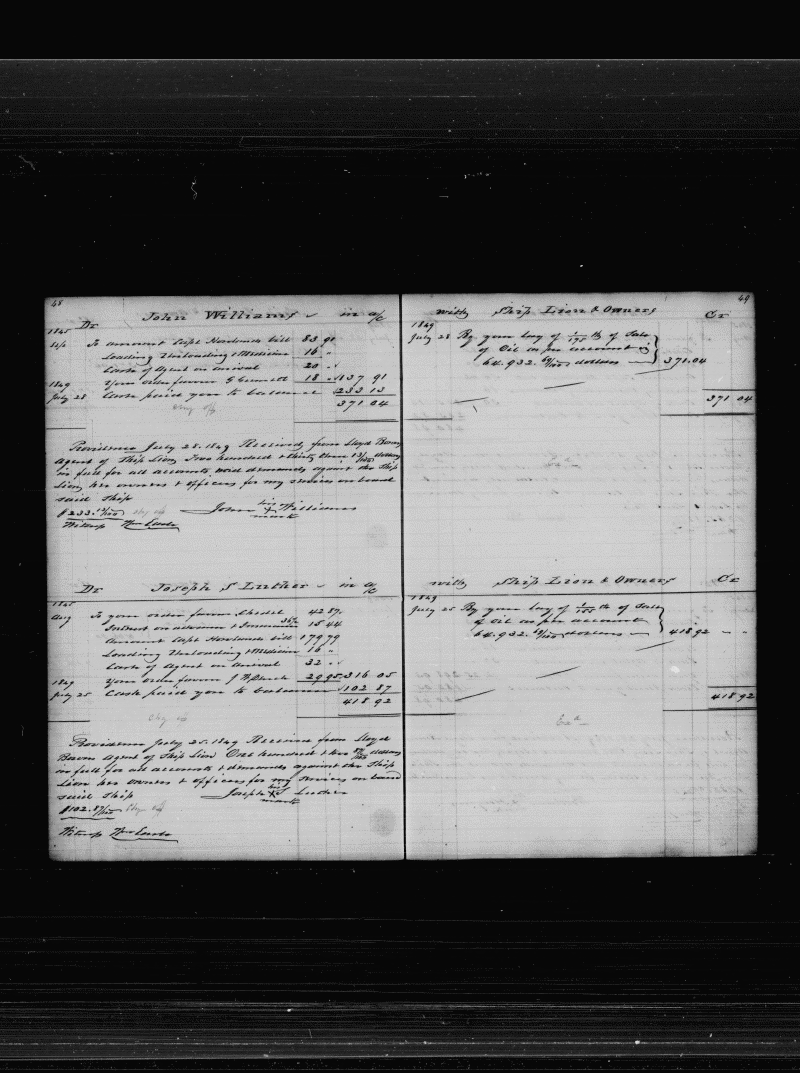 48
Dr John Williams in a/c
1845
Sep To amount Capt Howlands bill 83 91
Loading Unloading & Medicine 16 "
Cash of Agent on arrival 20 "
1849 Your order favour G Bennett 18 " 137 91
July 28 Cash paid you to balance 233 13
371 04
Providence July 28. 1849 Received from Lloyd Bowen
Agent of Ship Lion Two hundred & thirty three 13/100 dollars
in full for all accounts, and demands against the Ship
Lion her owners & officers for my services on board
said Ship
$233.13/100 John his X mark Williams
Witness Wm Earle
Dr Joseph S Luther in a/c
1845
Aug To your order favour 42 87
Interest on advance & Insurance 36% 15 44
Amount Capt Howlands bill 179 79
Loading Unloading & Medicine 16 "
Cash of Agent on arrival 32 "
1849 Your order favour J 29 95 316 05
July 25 Cash paid you to balance 102 87
418 92
Providence July 25. 1849 Received from Lloyd
Bowen Agent of Ship Lion One hundred & two 87/100 dollars
in full for all accounts & demands against the Ship
Lion her owners & officers for my services on board
said Ship Joseph his X mark S Luther
$102.87/100
Witness Wm Earle
49
with Ship Lion & Owners Cr
1849
July 28 By your lay of 1/175 th of Sale
of Oil as per account
64.932.69/100 dollars 371.04
371 04
with Ship Lion & Owners Cr
1849
July 25 By your lay of 1/155 th of Sale
of Oil as per account
64.932.69/100 dollars 418 92 " "
418 92